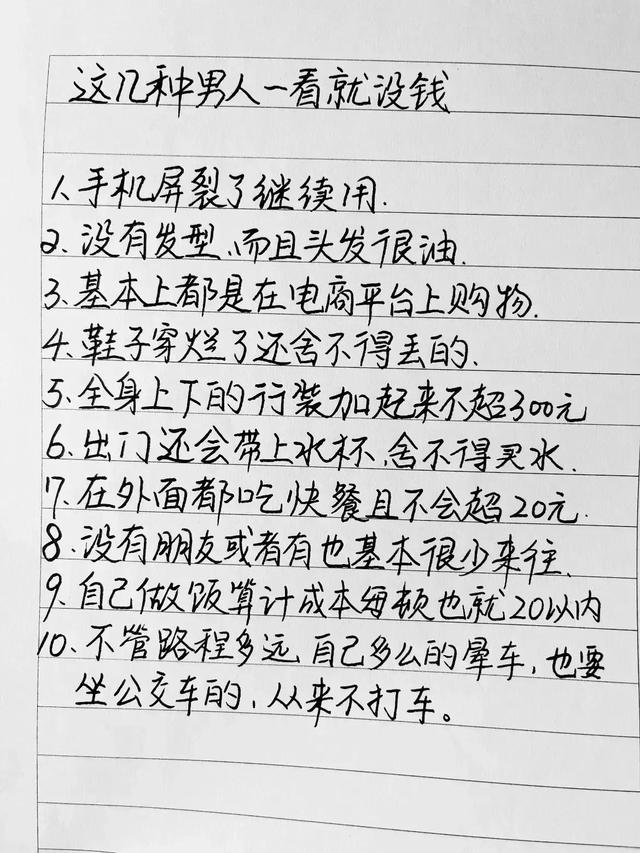 这几种男人一看就没钱
1、手机屏裂了继续用.
2、没有发型、而且头发很油.
3、基本上都是在电商平台上购物.
4、鞋子穿烂了还舍不得丢的.
5、全身上下的行装加起来不超300元
6、出门还会带上水杯,舍不得买水.
7、在外面都吃快餐且不会超20元.
8、没有朋友或者有也基本很少来往.
9、自己做饭算计成本每顿也就20以内
10、不管路程多远,自己多么的晕车,也要
坐公交车的,从来不打车。